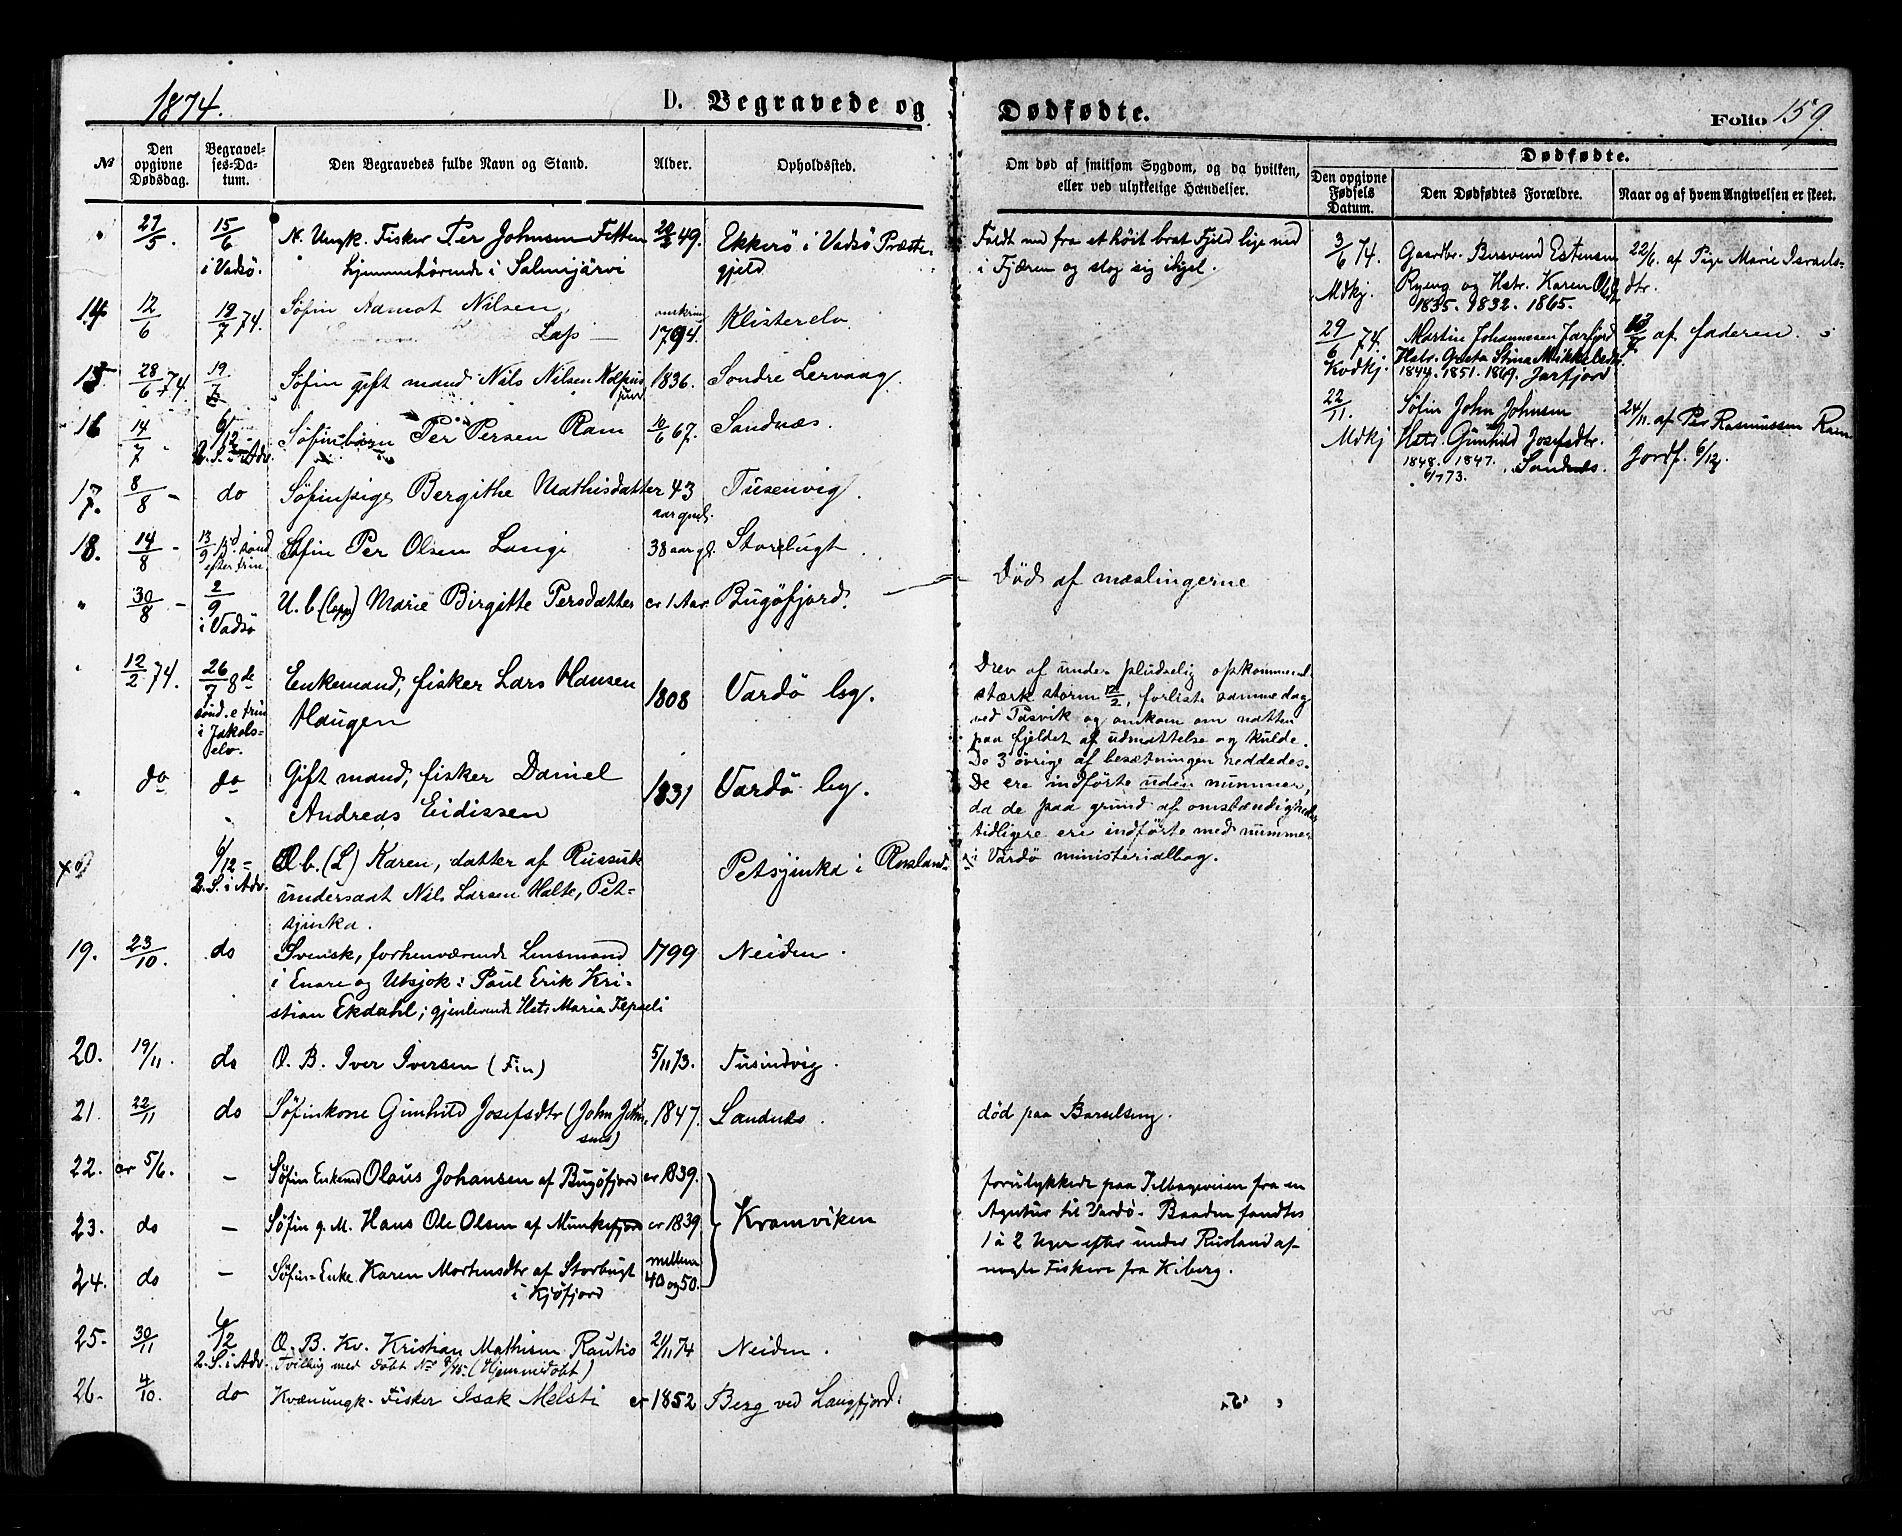 1874.
D. Begravede og Dødfødte.
Folio 159.
No
Den opgivne Dødsdag.
Begravelses-Datum.
Den Begravedes fulde Navn og Stand.
Alder.
Opholdssted.
Om død af smitsom Sygdom, og da hvilken,
eller ved ulykkelige Hændelser.
Dødfødte.
Den opgivne Fødsels Datum.
Den Dødfødtes Forældre.
Naar og af hvem Angivelsen er skeet.
" 27/5. 15/6 i Vadsö. N. Ungk. Fisker Per Johnsen Fetten 49. Ekkerö i Vadsö Præste-
hjemmehörende i Salmijärvi gjeld
Faldt ned fra et höit brat Fjeld lige ned
i Fjæren og slog sig ihjel.
14 12/6 19/7 74. Söfin Aamot Nilsen omkring
Lap 1794. Klisterelv
15 28/6 74. 19/7 Söfin gift mand Nils Nilsen 1836. Söndre Lervaag.
16 14/7 6/12 - 2. S. i Adv. Söfinbarn Per Persen Ram 10/6 67. Sandnæs.
17. 8/8 - do Söfinpige Bergithe Mathisdatter 43 Tusenvig.
aar gml.
18. 14/8 - 13/9 sönd. efter Trin Söfin Per Olsen Langi 38 aar gl. Storbugt
" 30/8 - 2/9 i Vadsö U. b (Lapp) Marie Birgitte Persdatter er 1 Aar. Bugöfjord.
Död af mæslingerne
" 12/2 74. 26/7 8de sönd. e trin i Jakobs-elv. Enkemand, fisker Lars Hansen 1808 Vardö by.
Haugen
Drev af under pludselig opkommend
stærk storm 12/2, forliste samme dag
ved Pasvik og omkom om natten
paa fjeldet af udmattelse og kulde.
De 3 övrige af besætningen reddedes.
De ere indförte uden nummer,
da de paa grund af omstændigheder
tidligere ere indförte med nummer
i Vardö ministerialbog.
" do do Gift mand, fisker Daniel 1831 Vardö by.
Andreas Eidissen
6/12 - 2. S. i Adv. b. (L) Karen, datter af Russisk Petsjinka i Rusland
undersaat Nils Larsen Halte, Pet-
sjinka.
19. 23/10. do Svensk, forhenværende Lensmand 1799 Neiden.
i Enare og Utsjok: Paul Erik Kri-
stian Ekdahl; gjenlevende Hstr Maria
20. 19/11. do O. B. Iver Iversen (Fin) 5/11 73. Tusindvig.
21. 22/11 do Söfinkone Gunhild Josefsdtr (John John-
sens) 1847. Sandnes.
död paa Barselseng.
22. er 5/6. - Söfin Enkemd Olaus Johansen af Bugöfjord er 1839.
23. do - Söfin g. M. Hans Ole Olsen af Munkefjord er 1839. Kramviken
24. do - Söfin-Enke Karen Mortensdtr af Storbugt mellem
i Kjöfjord 40 og 50.
forulykkede paa Tilbageveien fra en
Agutur til Vardö. Baaden fandtes
1 à 2 Uger efter under Rusland af
nogle Fiskere fra Kiberg.
25. 30/11 6/12 2. S. i Adv. O. B. Kv. Kristian Mathisen Rautio 21/11 74 Neiden.
Tvilling med döbt No 9/45. (Hjemmedöbt)
26. 4/10. do Kvænungk. Fisker Isak Melsti er 1852 Berg ved Langfjord.
3/6 74. Gaardbr. Bersvend Estensen 22/6. af Pige Marie Israels-
Mdkj. Ryeng og Hstr. Karen Olsdtr dtr.
1835. 1832. 1865.
29/6 74. Martin Johannesen Jarfjord af faderen.
Kvdkj. Hstr. Greta Stina Mikkelsdtr.
1844. 1851. 1869. Jarfjord
22/11. Söfin John Johnsen 24/11. af Per Rasmussen Ram
Mdkj Hstr. Gunhild Josefsdtr. Jordf. 6/12.
1848. 1847. Sandnæs.
6/7 73.